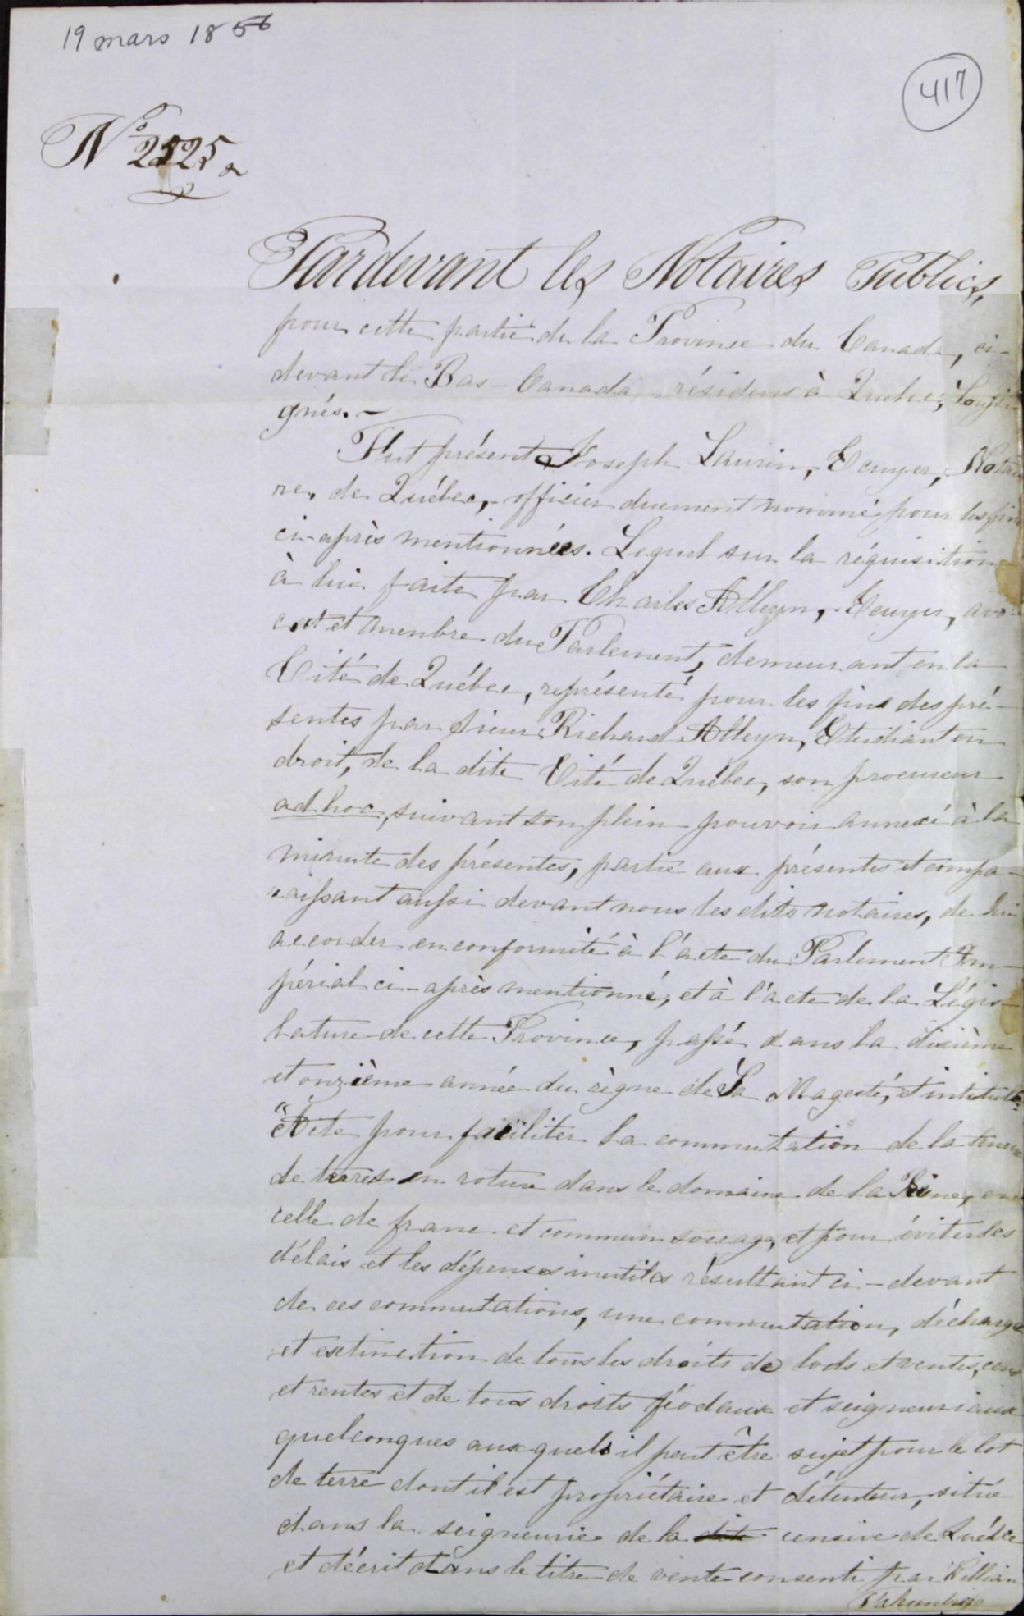 19 mars 1856
417
No 2525
Pardevant les Notaires Publics,
pour cette partie de la Province du Canada, ci-
devant le Bas-Canada, résidens à Québec, soussi-
gnés.-
Fut présent Joseph Laurin, Ecuyer, Notai-
re, de Québec, officier duement nommé pour les fins
ci-après mentionnées. Lequel sur la réquisition
à lui faite par Charles Alleyn, Ecuyer, avo-
cat et membre du Parlement, demeurant en la
Cité de Québec, représenté pour les fins des pré-
sentes par Sieur Richard Alleyn, Etudiant en
droit, de la dite Cité de Québec, son procureur
ad hoc, suivant son plein pouvoir annexé à la
minute des présentes, partie aux présentes et compa-
raissant aussi devant nous les dits notaires, de lui
accorder en conformité à l'acte du Parlement Im-
périal ci-après mentionné, et à l'acte de la Légis-
lature de cette Province, passé dans la dixième
et onzième année du règne de Sa Magesté, et intitulé:
"Acte pour faciliter la commutation de la tenure
de terres en roture dans le domaine de la Reine, en
celle de franc et commun soccage, et pour éviter les
délais et les dépenses inutiles résultant ci-devant
de ces commutations, une commutation, décharge
et extinction de tous les droits de lods et ventes, cens
et rentes et de tous droits féodaux et seigneuriaux
quelconques auxquels il peut être sujet pour le lot
de terre dont il est propriétaire et détenteur, situé
dans la seigneurie de la dite censive de Québec
et décrit dans le titre de vente consenti par William